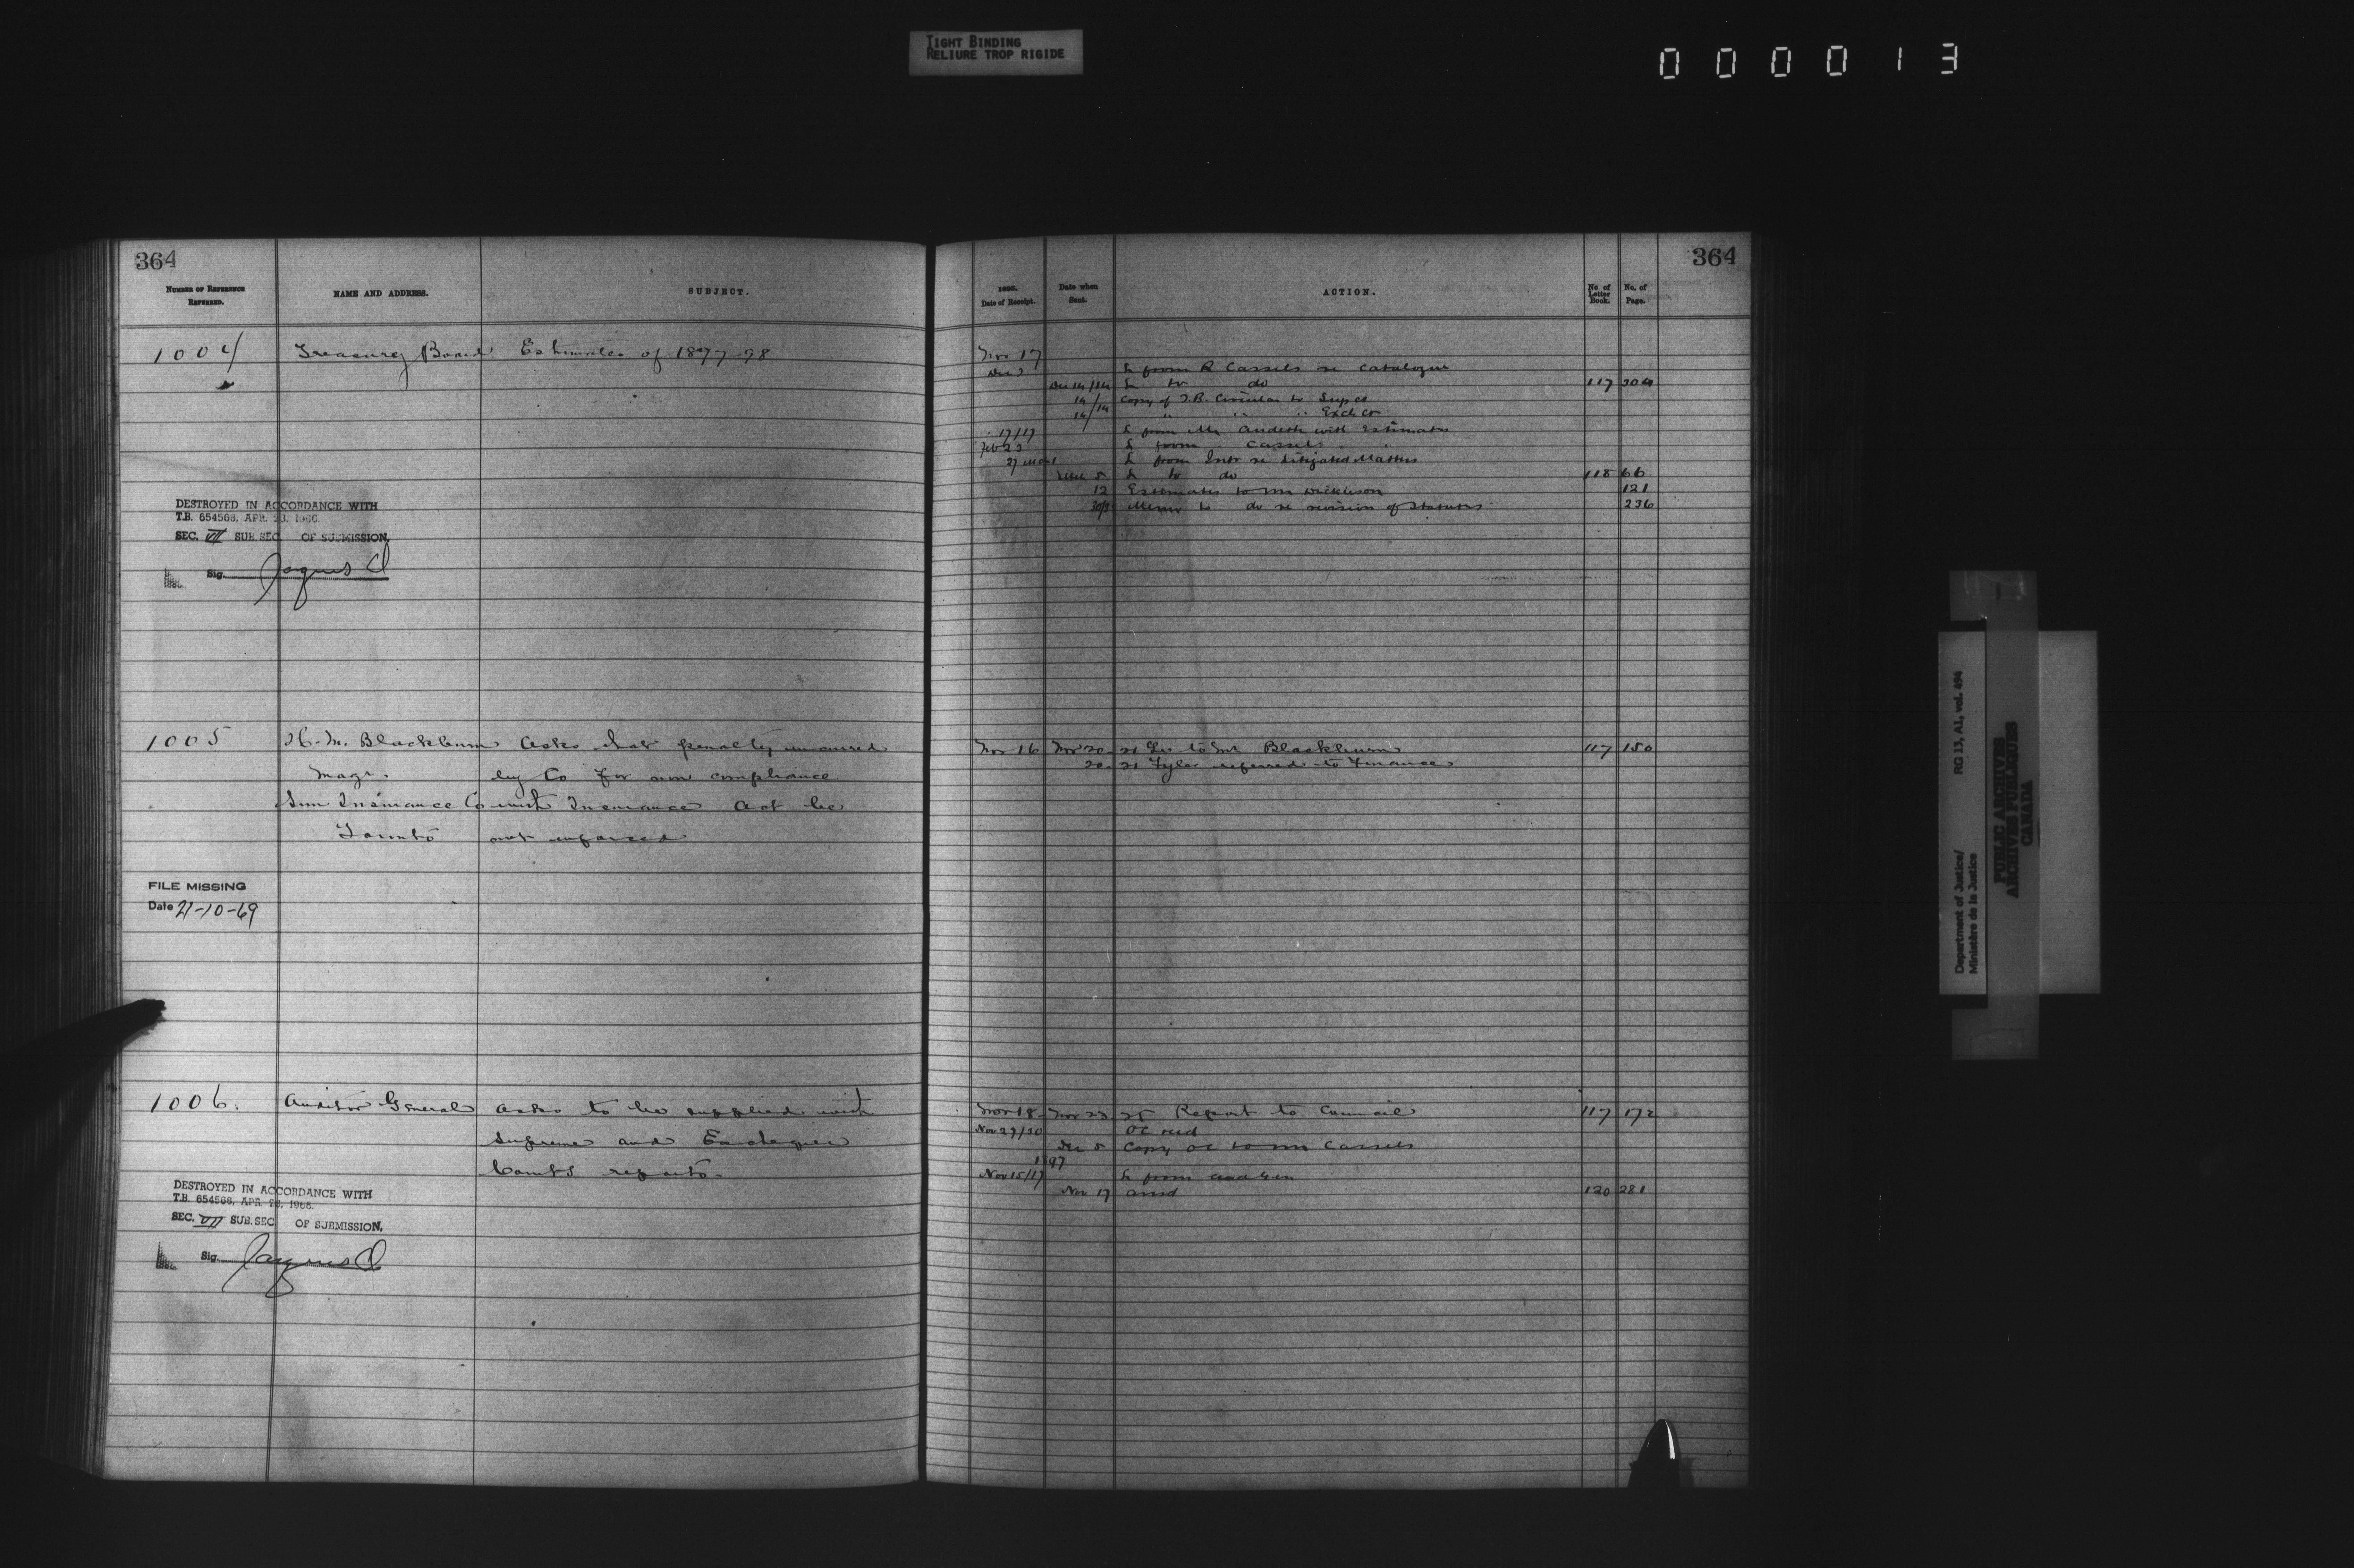 TIGHT BINDING
RELIURE TROP RIGIDE
0 0 0 0 1 3
364
NUMBER OF REFERENCE
REFERRED.
NAME AND ADDRESS.
SUBJECT.
1004 Treasury Board Estimates of 1897-98
DESTROYED IN ACCORDANCE WITH
T.B. 654568, APR. 28, 1966.
SEC. VII SUB. SEC. OF SUBMISSION.
Sig. Jacques
1005 H. M. Blackburn Asks that penalty incurred
Magr. by Co for non compliance
Sun Insurance Co with Insurance Act be
Toronto not enforced
FILE MISSING
Date 21-10-69
1006. Auditor General asks to be supplied with
Supreme and Exchequer
Courts reports.
DESTROYED IN ACCORDANCE WITH
T.B. 654568, APR. 28, 1966.
SEC. VII SUB. SEC. OF SUBMISSION.
Sig. Jacques
364
Date of Receipt.
Date when
Sent.
ACTION.
No. of
Letter
Book.
No. of
Page.
Nov 17
L from R Cassels re catalogue
Dec 14/14 L to do 117 304
14/ Copy of T.B. Circular to Sup Co
14/14 " " " Exch Co
17/17 L from Mr Audette with Estimates
Feb 23 L from Cassels "
27 L from Intr re Litigated Matters
5 L to do 118 66
12 Estimates to Mr Dickieson 121
Memo to do re revision of Statutes 236
Nov 16 Nov 20 21 Lr to Mr Blackburn 117 150
20 21 Fyles referred to Finance
Nov 18 Nov 23 25 Report to Council 117 172
Nov 27/30 OC recd
Dec 5 Copy OC to Mr Cassels
1897
Nov 15/17 L from Aud Gen
Nov 17 ansd 120 281
Department of Justice/
Ministère de la Justice
RG 13, A1, vol. 494
PUBLIC ARCHIVES
ARCHIVES PUBLIQUES
CANADA